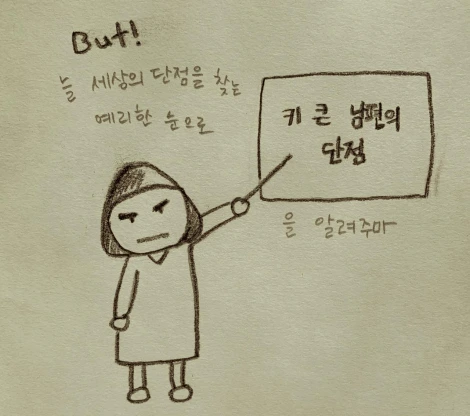 But!
늘 세상의 단점을 찾는
예리한 눈으로
키 큰 남편의
단점
을 알려주마